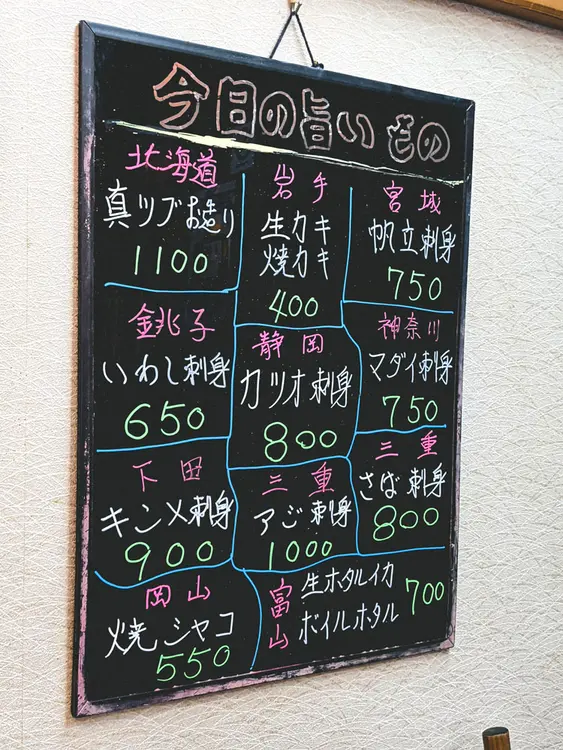 今日の旨いもの
北海道
真ツブお造り
1100
岩手
生カキ
焼カキ
400
宮城
帆立刺身
750
銚子
いわし刺身
650
静岡
カツオ刺身
800
神奈川
マダイ刺身
750
下田
キンメ刺身
900
三重
アジ刺身
1000
三重
さば刺身
800
岡山
焼シャコ
550
富山
生ホタルイカ
ボイルホタル
700